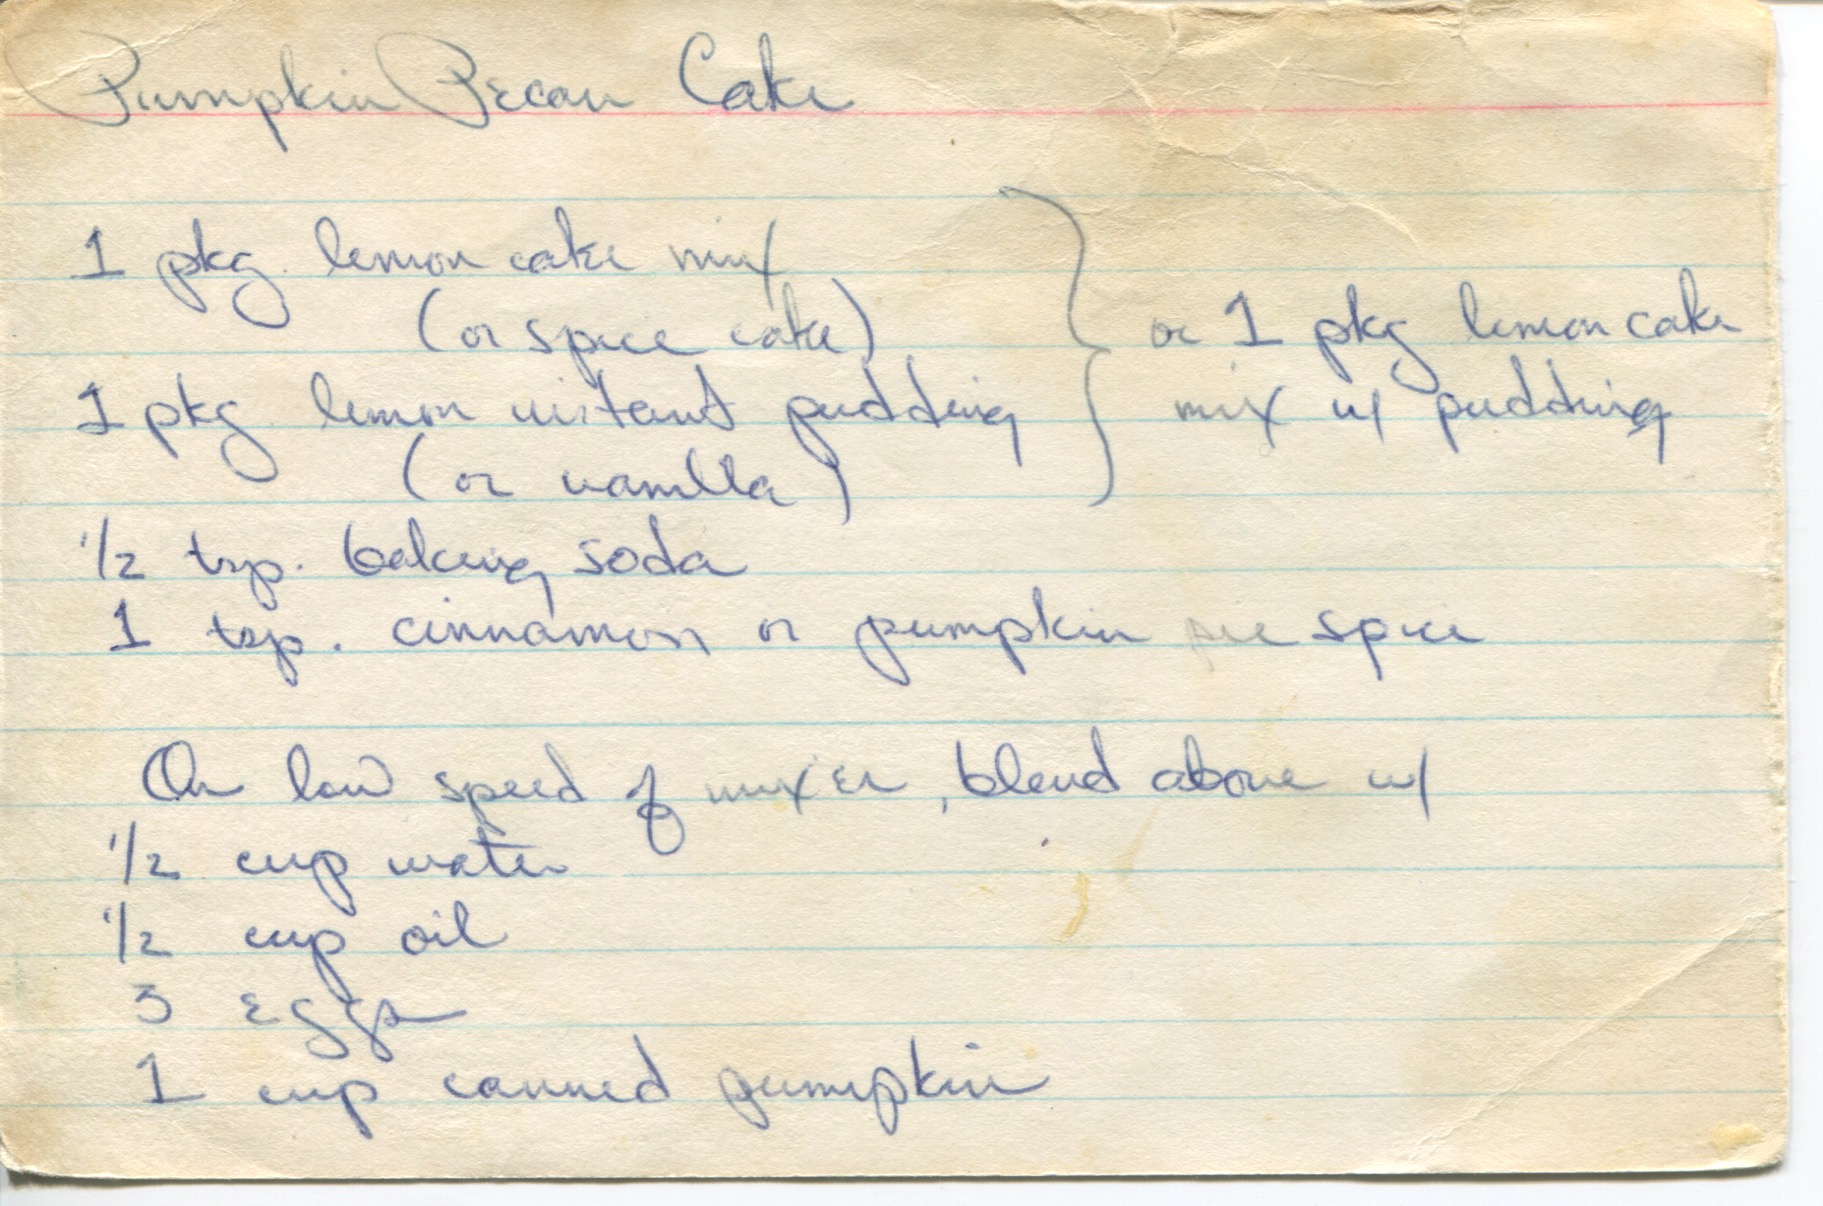 Pumpkin Pecan Cake
1 pkg. lemon cake mix
(or spice cake)
or 1 pkg lemon cake
1 pkg. lemon instant pudding
mix w/ pudding
(or vanilla)
1/2 tsp. baking soda
1 tsp. cinnamon or pumpkin pie spice
On low speed of mixer, blend above w/
1/2 cup water
1/2 cup oil
3 eggs
1 cup canned pumpkin